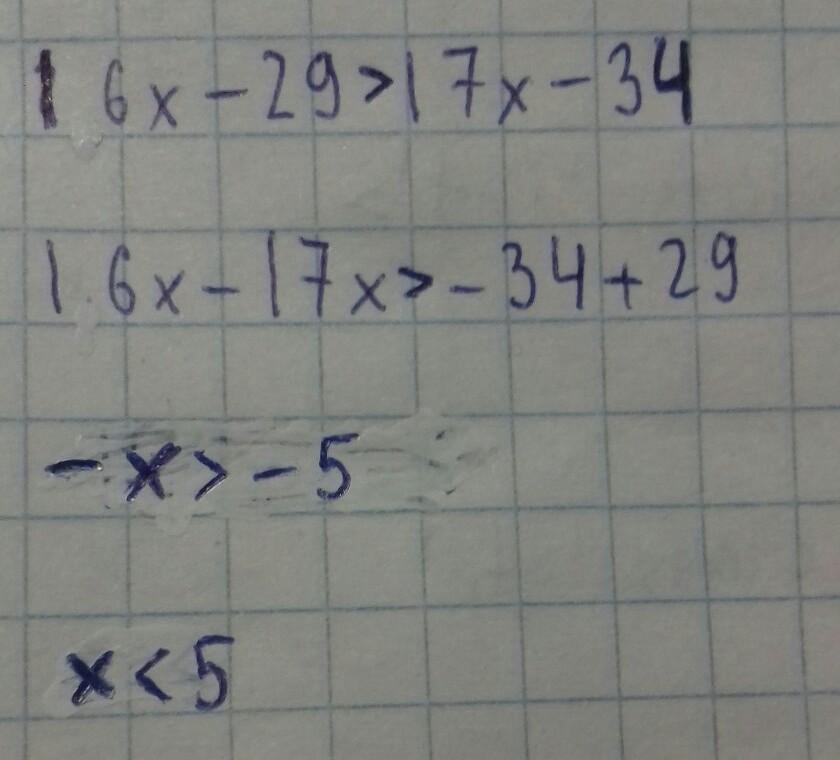 16x-29>17x-34
16x-17x>-34+29
-x>-5
x<5